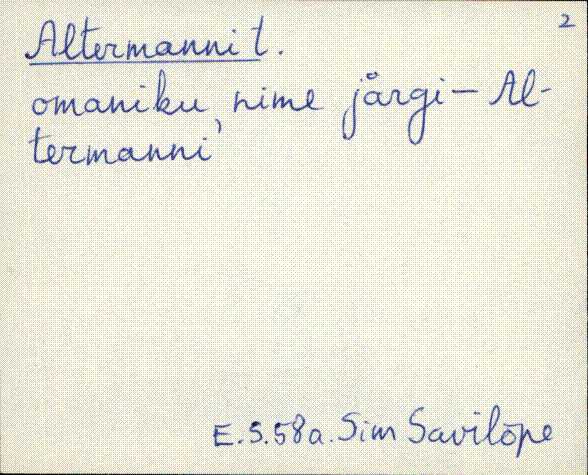 2
Altermanni t.
omaniku nime järgi – Al-
termanni
E. S. 58a. Sim Savilõpe